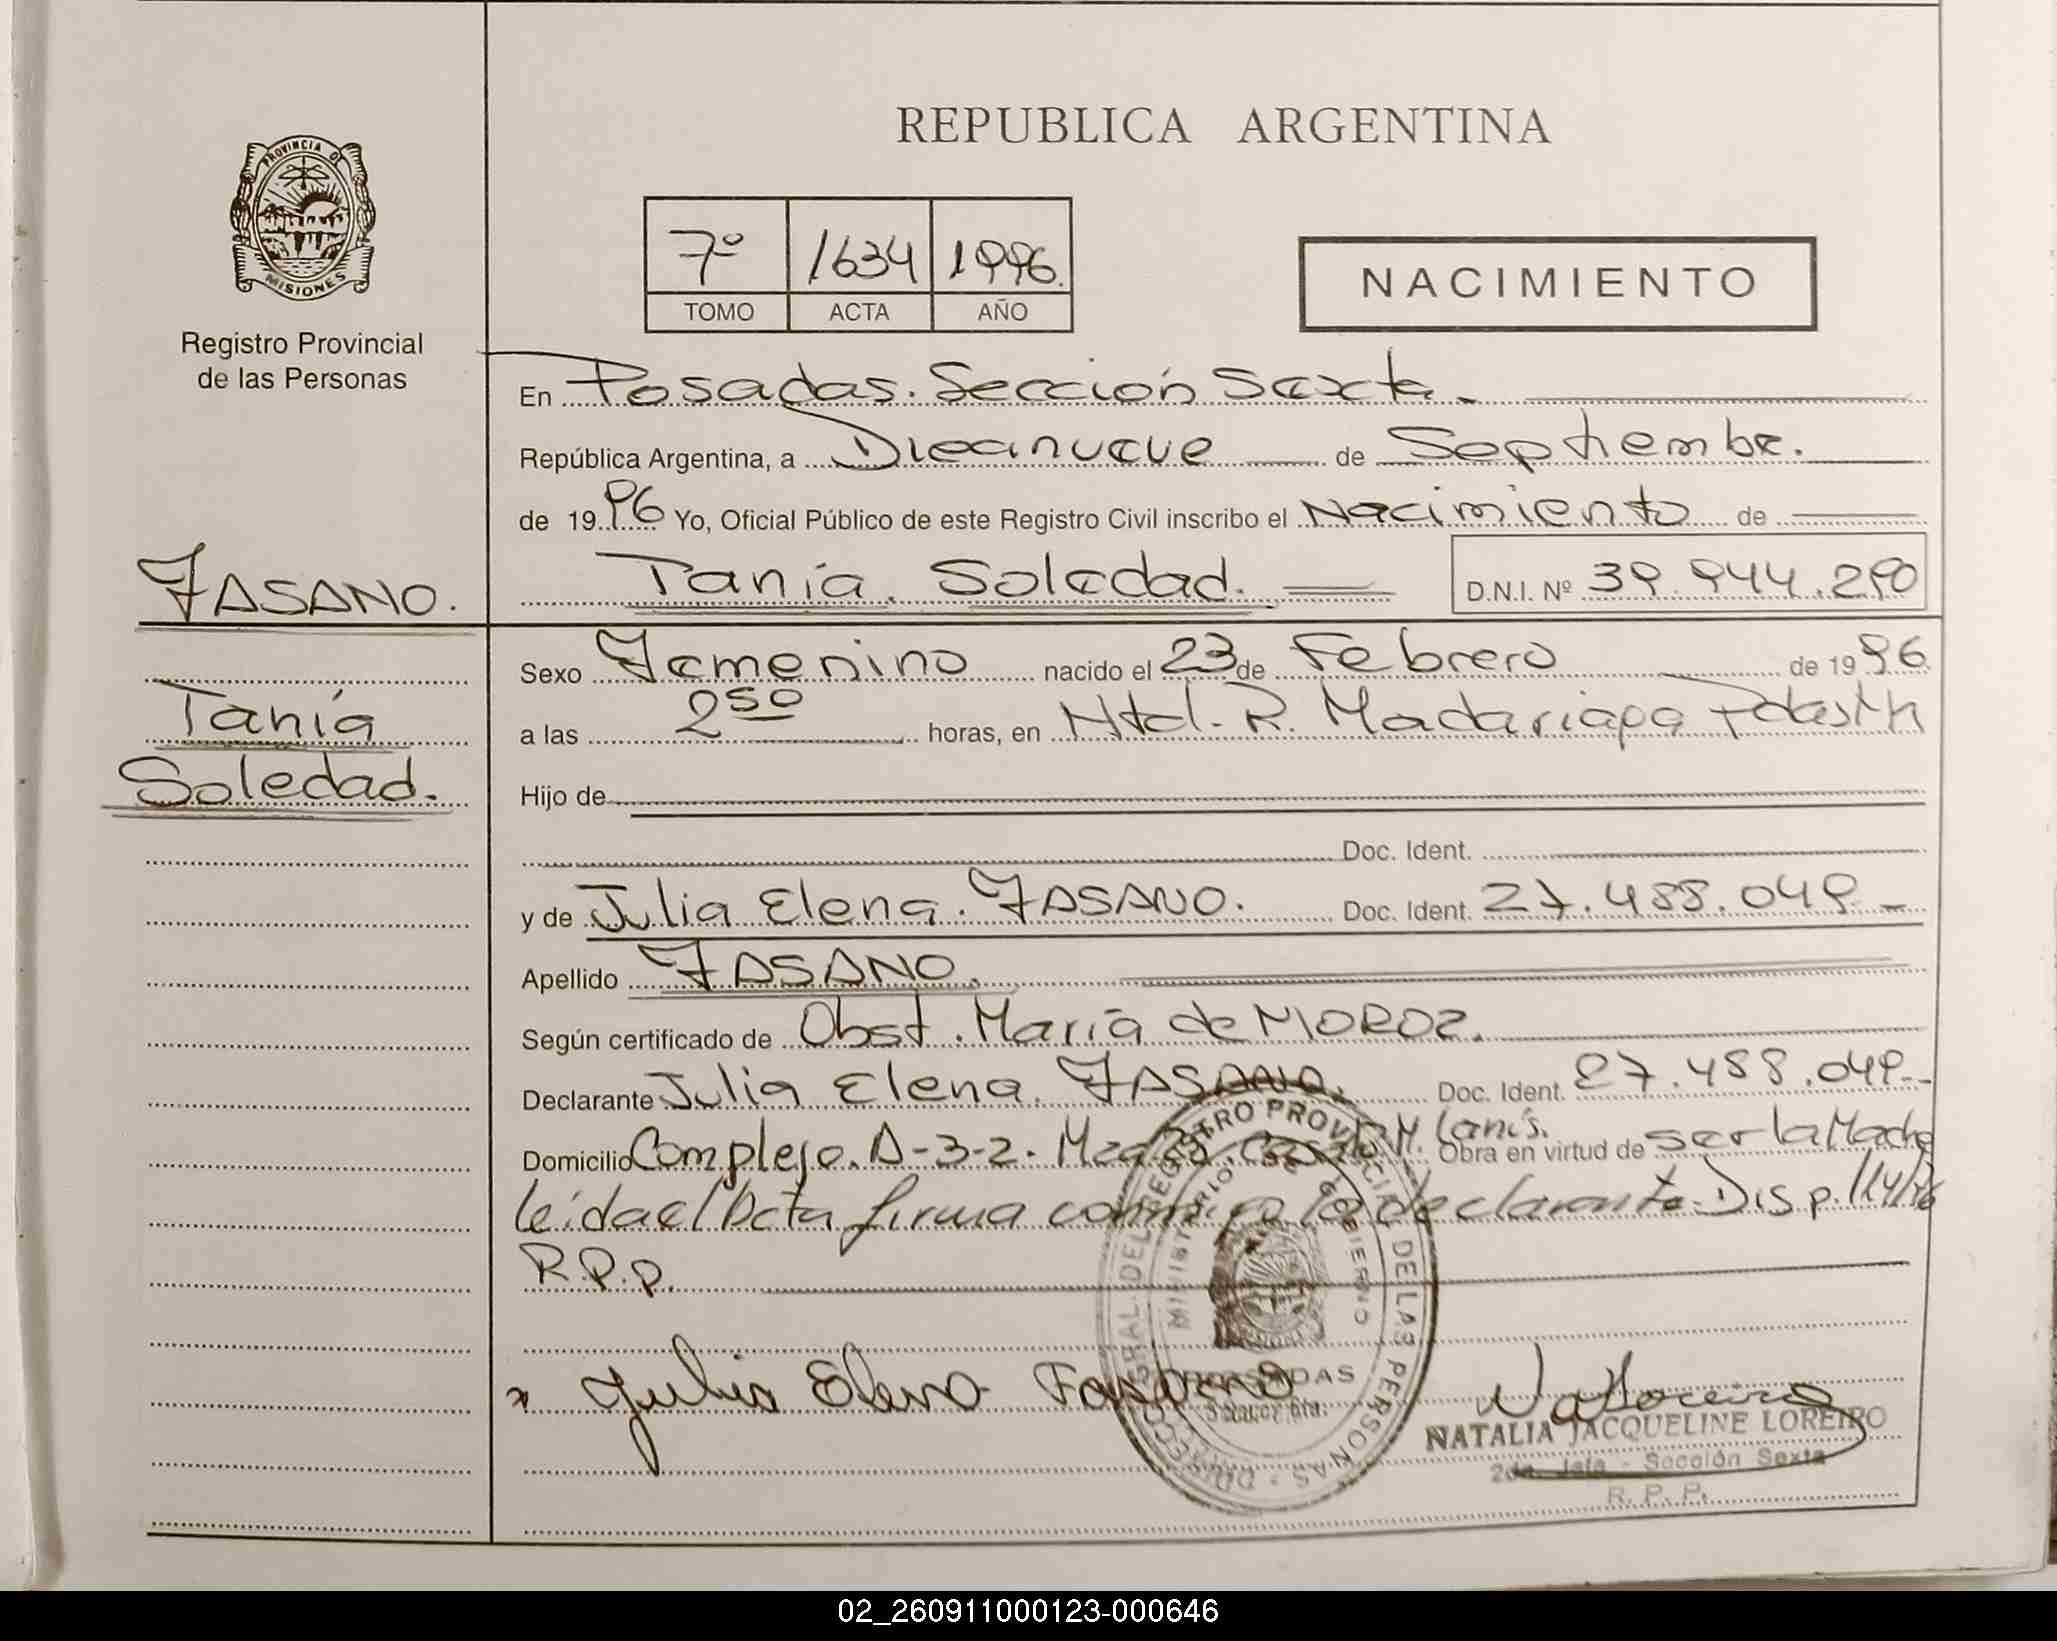 REPUBLICA ARGENTINA
PROVINCIA D
MISIONES
Registro Provincial
de las Personas
7º 1634 1996.
TOMO ACTA AÑO
NACIMIENTO
En Posadas. Sección Sexta.
República Argentina, a Diecinueve de Septiembre.
de 1996 Yo, Oficial Público de este Registro Civil inscribo el Nacimiento de
Tania. Soledad. D.N.I. Nº 39.944.290
FASANO.
Tania
Soledad.
Sexo Femenino nacido el 23 de Febrero de 1996.
a las 2 50 horas, en Htal. R. Madariaga Pdas Mn
Hijo de
Doc. Ident.
y de Julia Elena. FASANO. Doc. Ident. 27.488.049.-
Apellido FASANO.
Según certificado de Obst. María de MOROZ.
Declarante Julia Elena. FASANO. Doc. Ident. 27.488.049.-
Domicilio Complejo. A-3-2. Mza M. Lanús. Obra en virtud de ser la Madre
leída el Acta firma conmigo la declarante. Disp.
R.P.P.
Julia Elena Fasano
DIRECCION GRAL. DEL REGISTRO PROVINCIAL DE LAS PERSONAS
MINISTERIO DE GOBIERNO
POSADAS
NATALIA JACQUELINE LOREIRO
2da. Jefa - Sección Sexta
R. P. P.
02_260911000123-000646